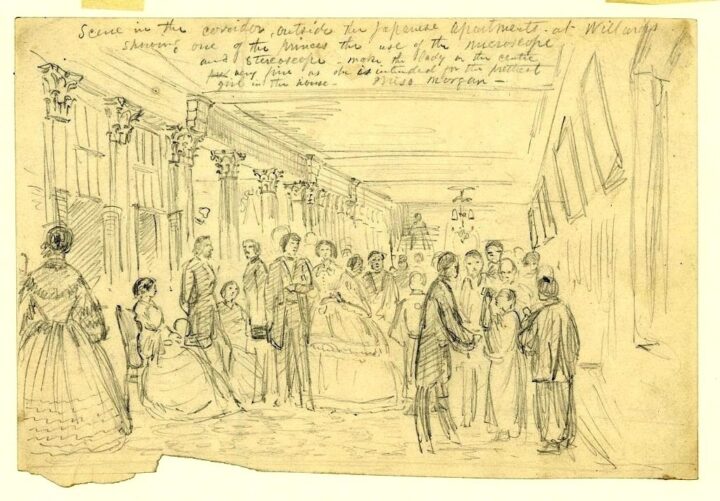 Scene in the coridor, outside the Japanese Apartments - at Willards
showing one of the Princes the use of the microscope
and Stereoscope - make the lady in the centre
very fine as she is intended for the prettiest
girl in the house - Miss Morgan -